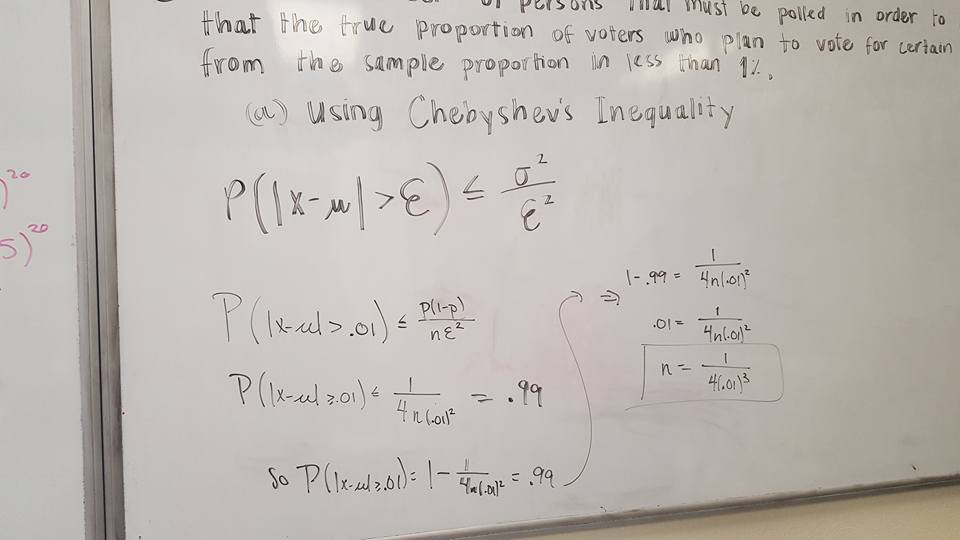 of persons that must be polled in order to
that the true proportion of voters who plan to vote for certain
from the sample proportion in less than 1%.
(a) Using Chebyshev's Inequality
P(|x-μ|>ε) ≤ σ²/ε²
P(|x-μ|>.01) ≤ p(1-p)/nε²
P(|x-μ|≥.01) ≤ 1/4n(.01)² = .99
So P(|x-μ|≥.01) = 1 - 1/4n(.01)² = .99
⇒ 1-.99 = 1/4n(.01)²
.01 = 1/4n(.01)²
n = 1/4(.01)³
)²⁰
5)²⁰